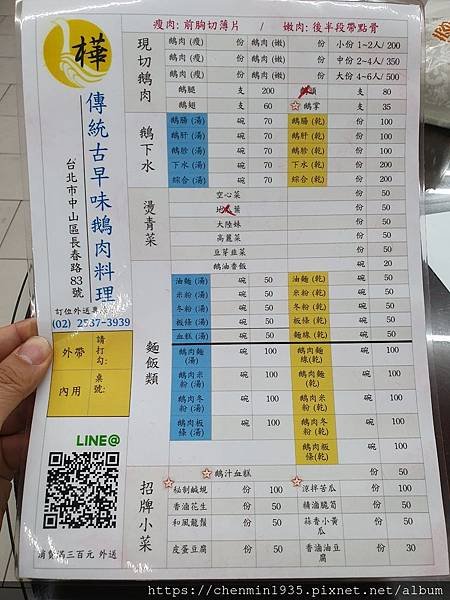 樺
傳統古早味鵝肉料理
台北市中山區長春路83號
(02) 2537-3939
外帶 請打勾:
內用 桌號:
LINE@
消費滿三百元 外送
瘦肉: 前胸切薄片 / 嫩肉: 後半段帶點骨
現切鵝肉
鵝肉 (瘦) 份 鵝肉 (嫩) 份 小份 1~2人/ 200
鵝肉 (瘦) 份 鵝肉 (嫩) 份 中份 2~4人/ 350
鵝肉 (瘦) 份 鵝肉 (嫩) 份 大份 4~6人/ 500
鵝腿 支 200 頭 支 80
鵝翅 支 60 鵝掌 支 35
鵝下水
鵝腸 (湯) 碗 70 鵝腸 (乾) 份 100
鵝肝 (湯) 碗 70 鵝肝 (乾) 份 100
鵝胗 (湯) 碗 70 鵝胗 (乾) 份 100
下水 (湯) 碗 70 下水 (乾) 份 200
綜合 (湯) 碗 70 綜合 (乾) 份 200
燙青菜
空心菜 份 50
地 葉 份 50
大陸妹 份 50
高麗菜 份 50
豆芽韭菜 份 50
麵飯類
鵝油香飯 碗 20
油麵 (湯) 碗 50 油麵 (乾) 碗 50
米粉 (湯) 碗 50 米粉 (乾) 碗 50
冬粉 (湯) 碗 50 冬粉 (乾) 碗 50
板條 (湯) 碗 50 板條 (乾) 碗 50
血糕 (湯) 碗 50 麵線 (乾) 碗 50
鵝肉麵 (湯) 碗 100 鵝肉麵線 (乾) 碗 100
鵝肉米粉 (湯) 碗 100 鵝肉麵 (乾) 碗 100
鵝肉冬粉 (湯) 碗 100 鵝肉米粉 (乾) 碗 100
鵝肉板條 (湯) 碗 100 鵝肉冬粉 (乾) 碗 100
鵝肉板條(乾) 碗 100
招牌小菜
鵝汁血糕 份 50
秘制鹹蜆 份 100 涼拌苦瓜 份 100
香滷花生 份 50 精滷脆筍 份 50
和風龍鬚 份 50 蒜香小黃瓜 份 50
皮蛋豆腐 份 50 香滷油豆腐 份 30
https://chenmin1935.pixnet.net/album